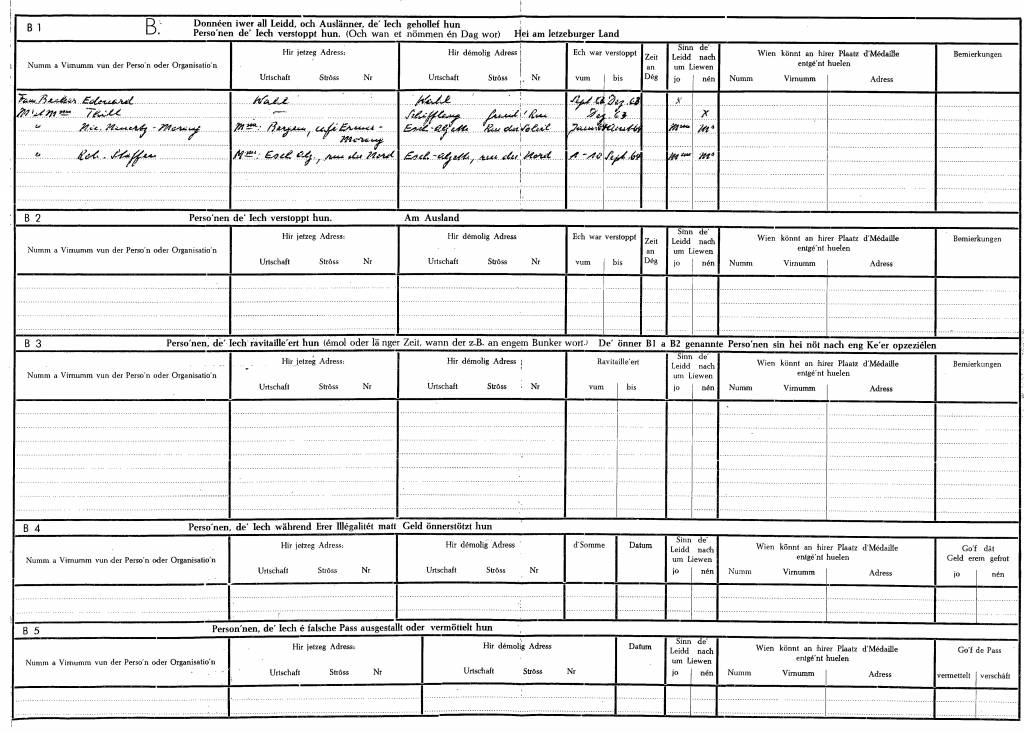 B 1 B. Donnéen iwer all Leidd, och Auslänner, de' Iech gehollef hun
Perso'nen de' Iech verstoppt hun. (Och wan et nömmen én Dag wor) Hei am letzeburger Land
Numm a Virnumm vun der Perso'n oder Organisatio'n Hir jetzeg Adress: Hir démolig Adress Ech war verstoppt Zeit an Dég Sinn de' Leidd nach um Liewen Wien könnt an hirer Plaatz d'Médaille entgé'nt huelen Bemierkungen
Urtschaft Ströss Nr Urtschaft Ströss Nr vum bis jo nén Numm Virnumm Adress
Fam. Becker Edouard Wahl Wahl Sept. 43 Dez. 43 x
M' et Mme Thill — Schifflang Dez. 43 x
" Nic. Mme: Bergem, café Esch-Alzette Rue du Soleil Mme Mr
" Rob. Steffen Mme: Esch Alz., rue du Nord Esch-Alzette, rue du Nord 1-10 Sept. 44 Mme Mr
B 2 Perso'nen de' Iech verstoppt hun. Am Ausland
Numm a Virnumm vun der Perso'n oder Organisatio'n Hir jetzeg Adress: Hir démolig Adress Ech war verstoppt Zeit an Dég Sinn de' Leidd nach um Liewen Wien könnt an hirer Plaatz d'Médaille entgé'nt huelen Bemierkungen
Urtschaft Ströss Nr Urtschaft Ströss Nr vum bis jo nén Numm Virnumm Adress
B 3 Perso'nen, de' Iech ravitaille'ert hun (émol oder länger Zeit, wann der z.B. an engem Bunker wort.) De' önner B1 a B2 genannte Perso'nen sin hei nöt nach eng Ke'er opzezièlen
Numm a Virnumm vun der Perso'n oder Organisatio'n Hir jetzeg Adress: Hir démolig Adress Ravitaille'ert Sinn de' Leidd nach um Liewen Wien könnt an hirer Plaatz d'Médaille entgé'nt huelen Bemierkungen
Urtschaft Ströss Nr Urtschaft Ströss Nr vum bis jo nén Numm Virnumm Adress
B 4 Perso'nen, de' Iech während Erer Illégalitét matt Geld önnerstötzt hun
Numm a Virnumm vun der Perso'n oder Organisatio'n Hir jetzeg Adress: Hir démolig Adress d'Somme Datum Sinn de' Leidd nach um Liewen Wien könnt an hirer Plaatz d'Médaille entgé'nt huelen Go'f dät Geld erem gefrot
Urtschaft Ströss Nr Urtschaft Ströss Nr jo nén Numm Virnumm Adress jo nén
B 5 Person'nen, de' Iech é falsche Pass ausgestallt oder vermöttelt hun
Numm a Virnumm vun der Perso'n oder Organisatio'n Hir jetzeg Adress: Hir démolig Adress Datum Sinn de' Leidd nach um Liewen Wien könnt an hirer Plaatz d'Médaille entgé'nt huelen Go'f de Pass
Urtschaft Ströss Nr Urtschaft Ströss Nr jo nén Numm Virnumm Adress vermettelt verschäft